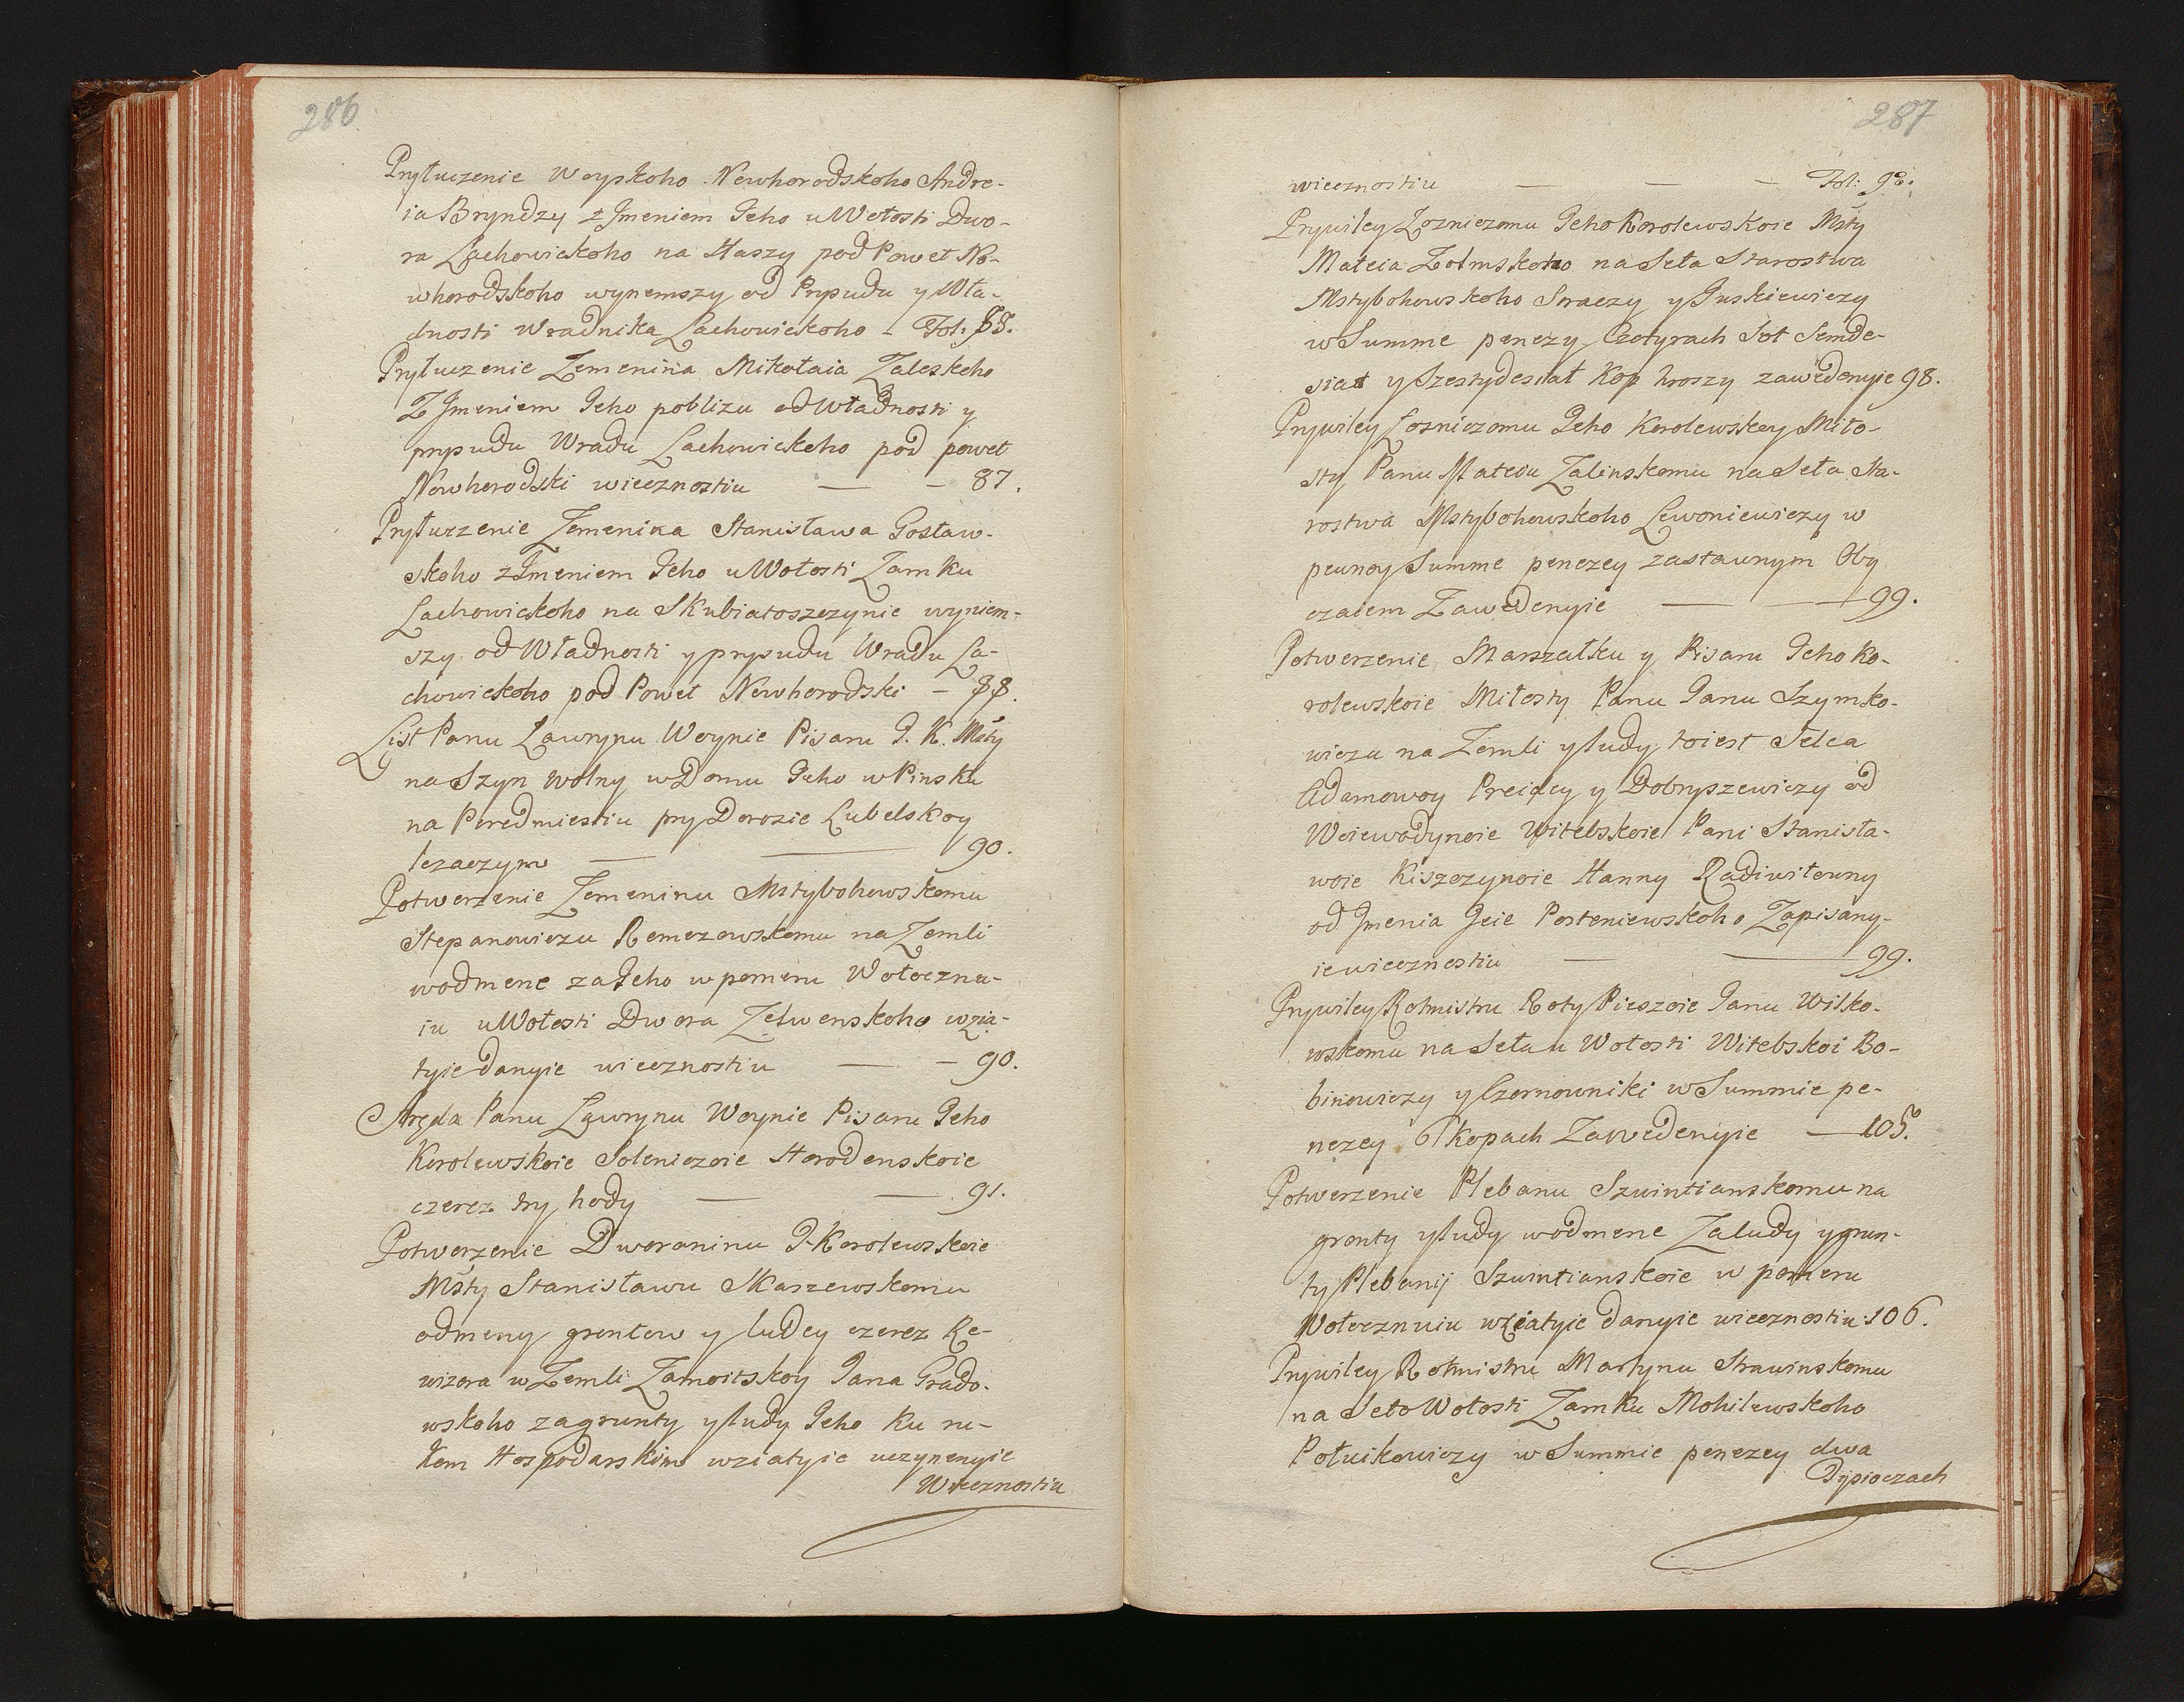 286
Pryłuczenie Woyskoho Nowhorodskoho Andre-
ia Bryndzy z Jmeniem Jeho u Wołosti Dwo-
ra Lachowickoho na Haszy pod Powet No-
whorodskoho wyniemszy od Prysudu y Wła-
dnosti Wradnika Lachowickoho - Fol: 85.
Pryłuczenie Zemenina Mikołaia Zaleskoho
Z Jmeniem Jeho poblizu od Władnosti y
prysudu Wradu Lachowickoho pod powet
Nowhorodski wiecznostiu — - 87.
Pryłuczenie Zemenina Stanisława Gosław-
skoho z Jmeniem Jeho u Wołosti Zamku
Lachowickoho na Skubiatoszczynie wyniem-
szy od Władnosti y prysudu Wradu La-
chowickoho pod Powet Nowhorodski - 88.
List Panu Ławrynu Woynie Pisaru J. K. Msty
na Szyn wolny w Domu Jeho w Pinsku
na Peredmiestiu pry Dorozie Lubelskoy
lezaczym — — 90.
Potwerzenie Zemeninu Mstybohowskomu
Stepanowiczu Remezowskomu na Zemli
wodmene za Jeho w pomeru Wołoczna-
iu u Wołosti Dwora Zelwenskoho wzia-
tyie danyie wiecznostiu — - 90.
Aręda Panu Ławrynu Woynie Pisaru Jeho
Korolewskoie Soleniczoie Horodenskoie
czerez try hody — — 91.
Potwerzenie Dworaninu J. Korolewskoie
Msty Stanisławu Skaszewskomu
odmeny gruntow y ludey czerez Re-
wizora w Zemli Zamoitskoy Jana Grado-
wskoho za grunty y ludy Jeho Ku ru-
kom Hospodarskim wziatyie uczynenyie
Wiecznostiu
287
wiecznostiu — — - Fol: 92.
Prywiley Łozniczomu Jeho Korolewskoie Msty
Mateia Zolmskoho na Seła Starostwa
Mstybohowskoho Sraczy y Juskiewiczy
w Summe penezy Czotyrach Sot Semde-
siat y Szestydesiat Kop hroszy zawedenyie 98.
Prywiley Łozniczomu Jeho Korolewskey Miło-
sty Panu Mateou Zalinskomu na Seła Sta-
rostwa Mstybohowskoho Lewoniewiczy w
pewnoy Summe penezey zastawnym Oby
czaiem Zawedenyie — — 99.
Potwerzenie Marszałku y Pisaru Jeho Ko-
rolewskoie Miłosty Panu Janu Szymko-
wiczu na Zemli y ludy toiest Selca
Adamowoy Preidcy y Dobryszewiczy od
Woiewodynoie Witebskoie Pani Stanisła-
woie Kiszczynoie Hanny Radiwilowny
od Jmenia Jeie Posteniewskoho Zapisany-
ie wiecznostiu — — 99.
Prywiley Rotmistru Roty Pieszoie Janu Wilko-
wskomu na Seła u Wołosti Witebskoi Bo-
binowiczy y Czernowniki w Summie pe-
nezey 6 Kopach Zawedenyie — 105.
Potwerzenie Plebanu Szwintianskomu na
grunty y ludy wodmene Za ludy y grun-
ty Plebanij Szwintianskoie w pomeru
Wołocznuiu wziatyie danyie wiecznostiu 106.
Prywiley Rotmistru Martynu Strawinskomu
na Seło Wołosti Zamku Mohilewskoho
Połuikowiczy w Summie penezey dwa